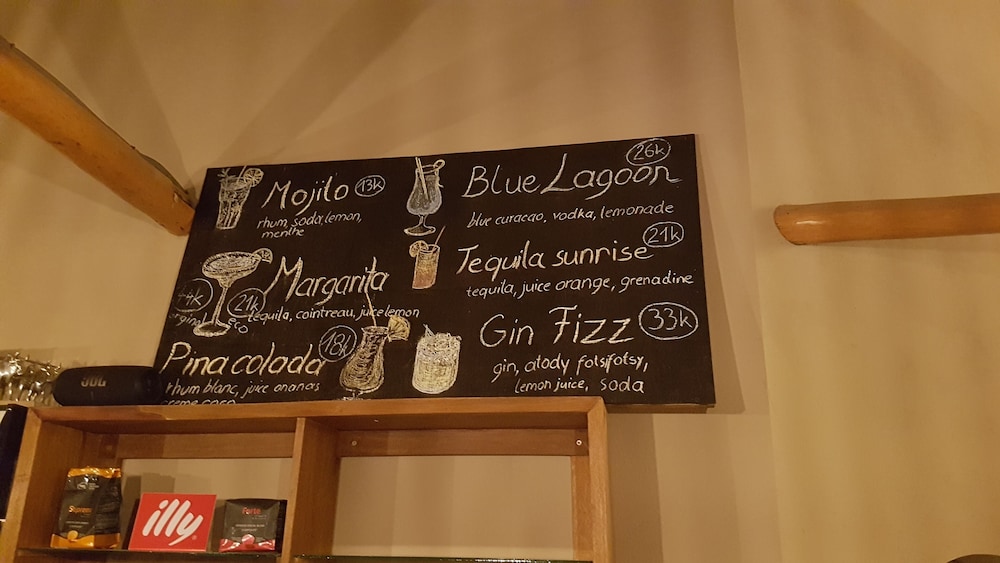 Mojito 13k
rhum, soda, lemon,
menthe
Margarita
44k original 21k eco
tequila, cointreau, juice lemon
Pina colada 18k
rhum blanc, juice ananas
creme coco
Blue Lagoon 26k
blue curacao, vodka, lemonade
Tequila sunrise 21k
tequila, juice orange, grenadine
Gin Fizz 33k
gin, atody fotsifotsy,
lemon juice, soda
JBL
Supremo
illy
Forte